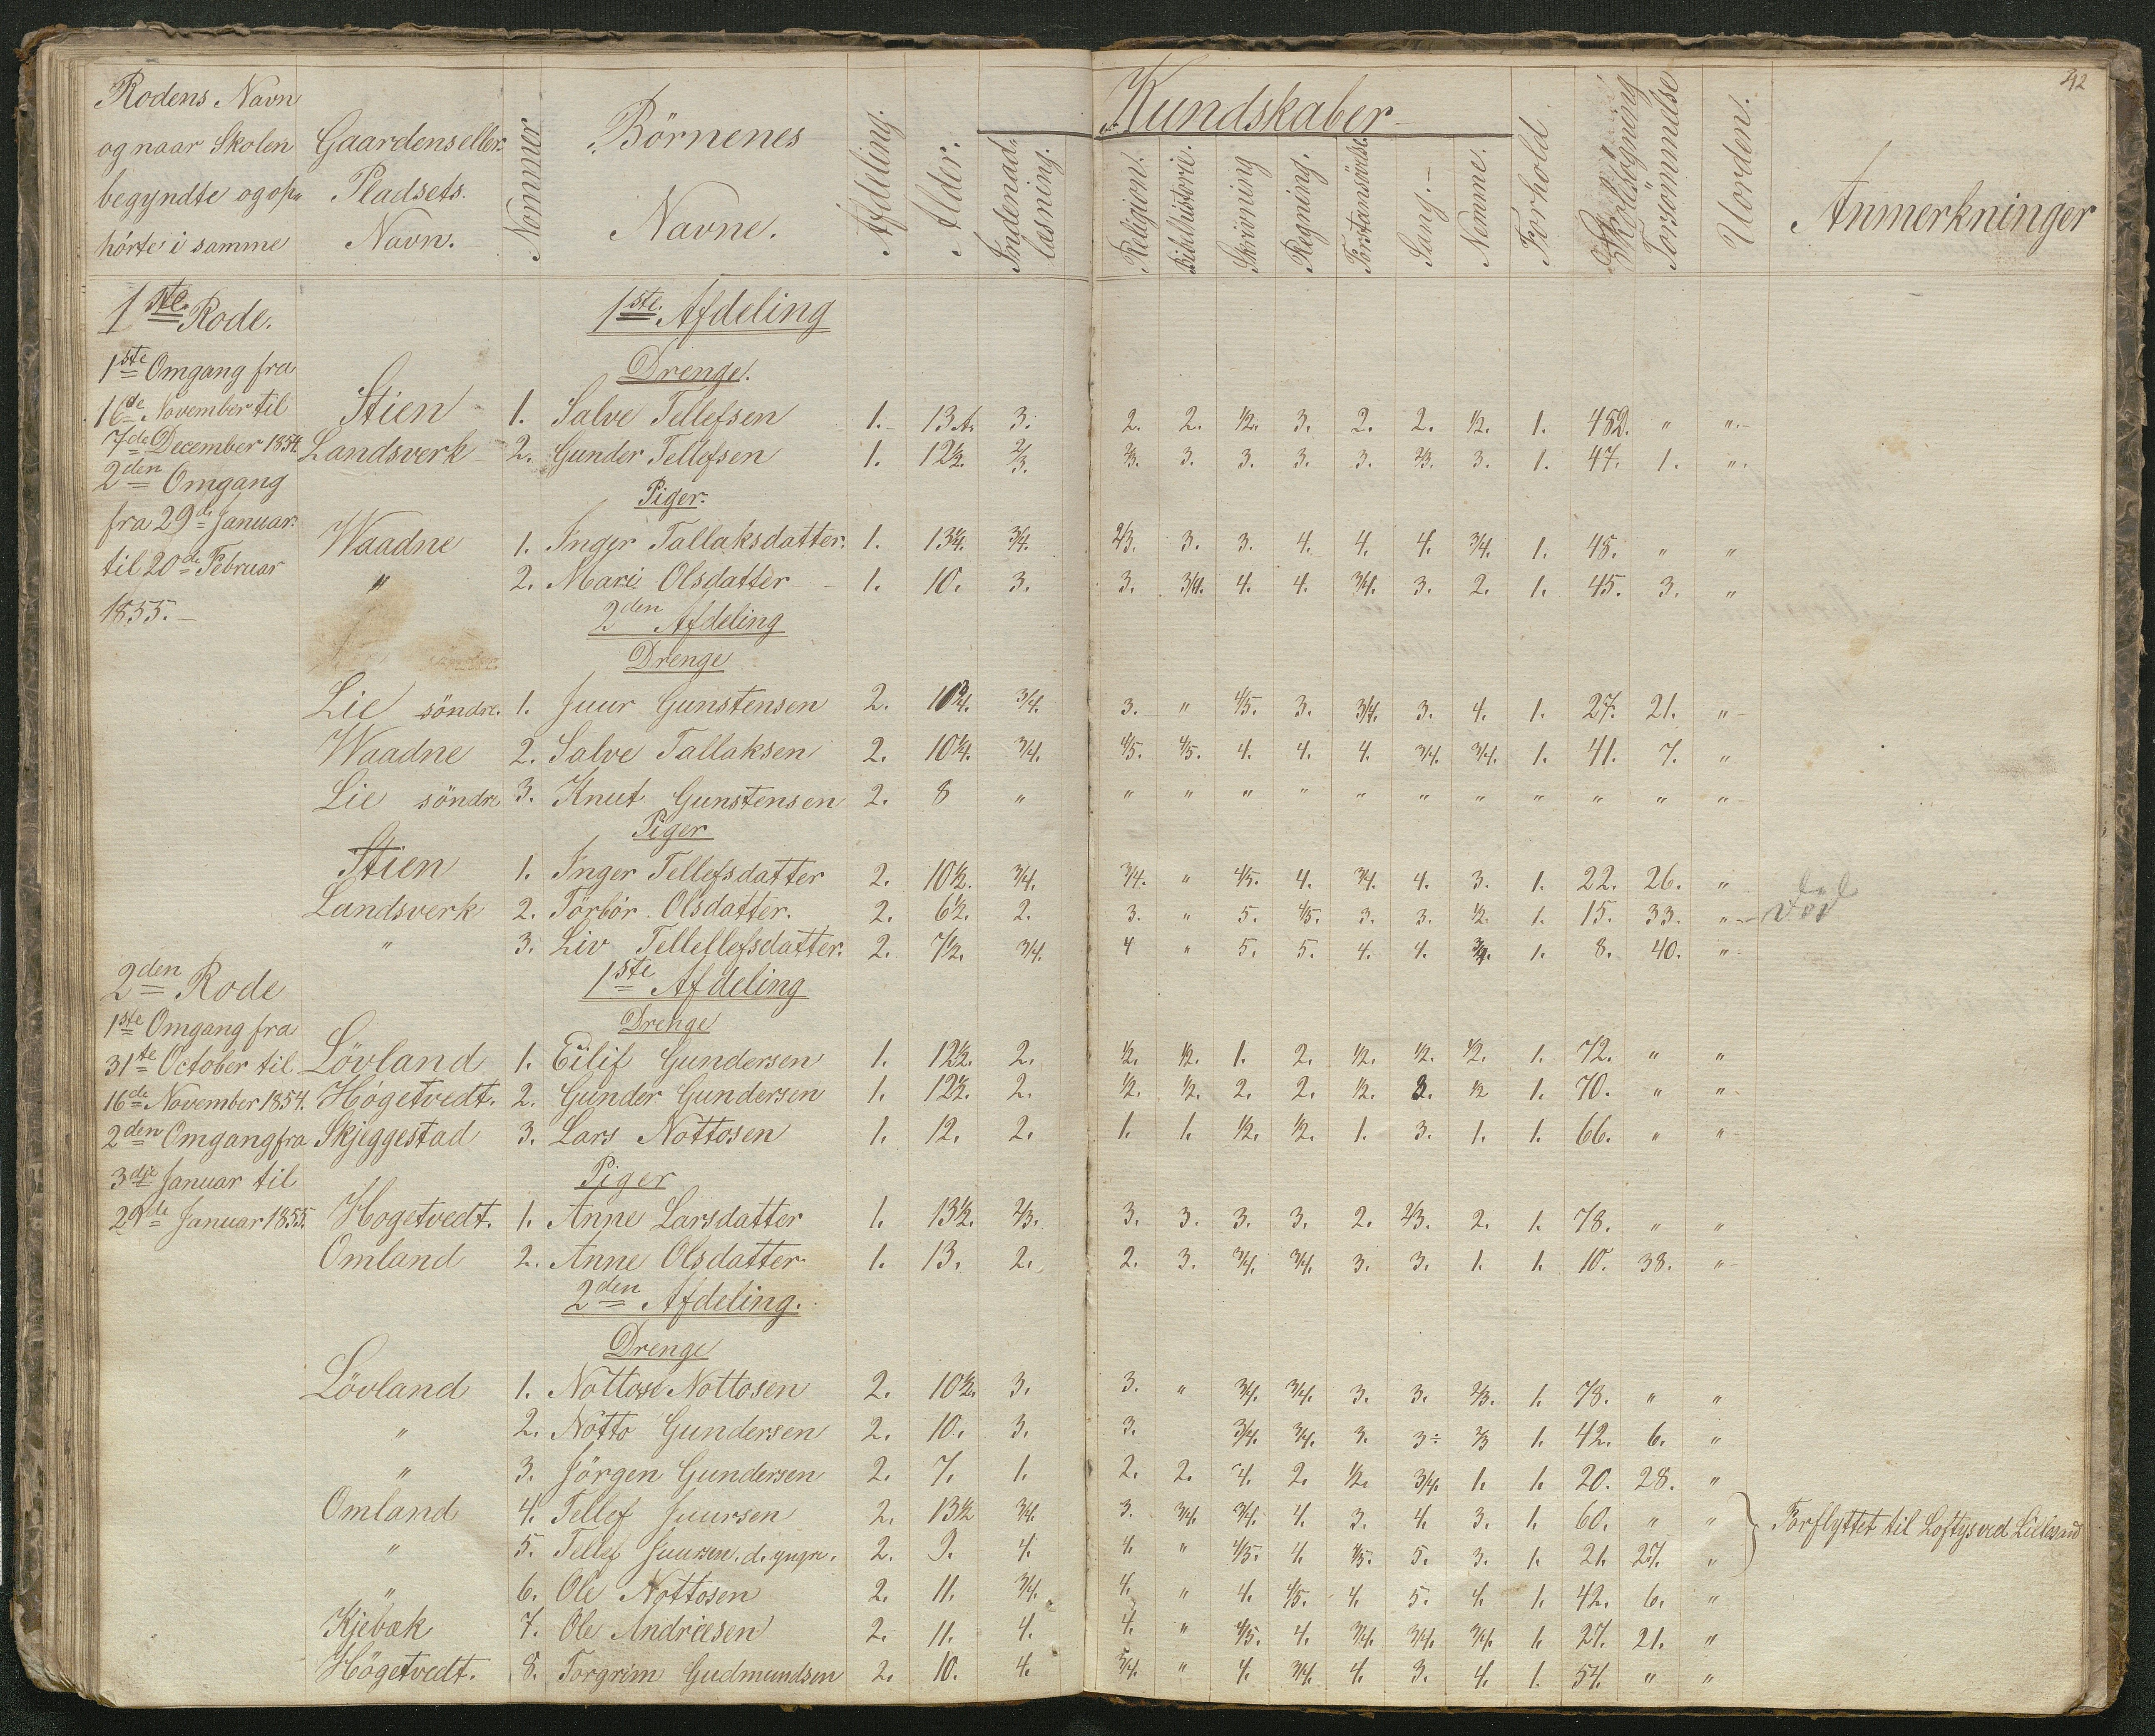 42
Rodens Navn og naar Skolen begyndte og op- hørte i samme | Gaardens eller Pladsets Navn. | Nommer | Börnenes Navne. | Afdeling. | Alder. | Indenad- læsning. | Kundskaber | Religion. | Bibelhistorie. | Skrivning | Regning. | Forstansövelse | Sang. | Nemme. | Forhold | Skolesögning | Forsömmelse | Uorden. | Anmerkninger
1ste Rode. 1ste Afdeling
1ste Omgang fra Drenge.
16de November til Stien 1. Salve Tellefsen 1. 13 A. 3. 2. 2. 1/2. 3. 2. 2. 1/2. 1. 482. " "
7de December 1854. Landsverk 2. Gunder Tellefsen 1. 12 1/2. 2/3. 2/3. 3. 3. 3. 3. 2/3. 3. 1. 47. 1. "
2den Omgang Piger.
fra 29de Januar Waadne 1. Inger Tallaksdatter. 1. 13 1/4. 3/4. 2/3. 3. 3. 4. 4. 4. 3/4. 1. 48. " "
til 20de Februar " 2. Mari Olsdatter 1. 10. 3. 3. 3/4. 4. 4. 3/4. 3. 2. 1. 45. 3. "
1855. 2den Afdeling
Drenge
Lie söndre. 1. Juur Gunstensen 2. 10 3/4. 3/4. 3. " 4/5. 3. 3/4. 3. 4. 1. 27. 21. "
Waadne 2. Salve Tallaksen 2. 10 1/4. 3/4. 4/5. 4/5. 4. 4. 4. 3/4. 3/4. 1. 41. 7. "
Lie söndre 3. Knut Gunstensen 2. 8 " " " " " " " " " " " "
Piger
Stien 1. Inger Tellefsdatter 2. 10 1/2. 3/4. 3/4. " 4/5. 4. 3/4. 4. 3. 1. 22. 26. "
Landsverk 2. Törbör Olsdatter. 2. 6 1/2. 2. 3. " 5. 4/5. 3. 3. 1/2. 1. 15. 33. " död
" 3. Liv Tellellefsdatter. 2. 7 1/2. 3/4. 4 " 5. 5. 4. 4. 3/4. 1. 8. 40. "
2den Rode 1ste Afdeling
1ste Omgang fra Drenge
31te October til Lövland 1. Eilif Gundersen 1. 12 1/2. 2. 1/2. 1/2. 1. 2. 1/2. 1/2. 1/2. 1. 72. " "
16de November 1854. Högetvedt. 2. Gunder Gundersen 1. 12 1/2. 2. 1/2. 1/2. 2. 2. 1/2. 3. 1/2 1. 70. " "
2den Omgang fra Skjeggestad 3. Lars Nottosen 1. 12. 2. 1. 1. 1/2. 1/2. 1. 3. 1. 1. 66. " "
3die Januar til Piger
29de Januar 1855. Hogetvedt. 1. Anne Larsdatter 1. 13 1/2. 2/3. 3. 3. 3. 3. 2. 2/3. 2. 1. 78. " "
Omland 2. Anne Olsdatter 1. 13. 2. 2. 3. 3/4. 3/4. 3. 3. 1. 1. 10. 38. "
2den Afdeling.
Drenge
Lövland 1. Nottose Nottosen 2. 10 1/2. 3. 3. " 3/4. 3/4. 3. 3. 2/3. 1. 78. " "
" 2. Nötto Gundersen 2. 10. 3. 3. 3/4. 3/4. 3. 3÷ 2/3 1. 42. 6. "
" 3. Jörgen Gundersen 2. 7. 1. 2. 2. 4. 2. 1/2. 3/4. 1. 1. 20. 28. "
Omland 4. Tellef Juursen 2. 13 1/2 3/4. 3. 3/4. 3/4. 4. 3. 4. 3. 1. 60. " " } Forflyttet til Loftys ved
" 5. Tellef Juursen. d. yngre. 2. 9. 4. 4. " 4/5. 4. 4/5. 5. 3. 1. 21. 27. "
" 6. Ole Nottosen 2. 11. 3/4. 4. " 4. 4/5. 4. 5. 4. 1. 42. 6. "
Kjebæk 7. Ole Andreesen 2. 11. 4. 4. " 4/5. 4. 3/4. 3/4. 3/4. 1. 27. 21. "
Högetvedt. 8. Torgrim Gudmundsen 2. 10. 4. 3/4. " 4. 3/4. 4. 3. 4. 1. 54. " "